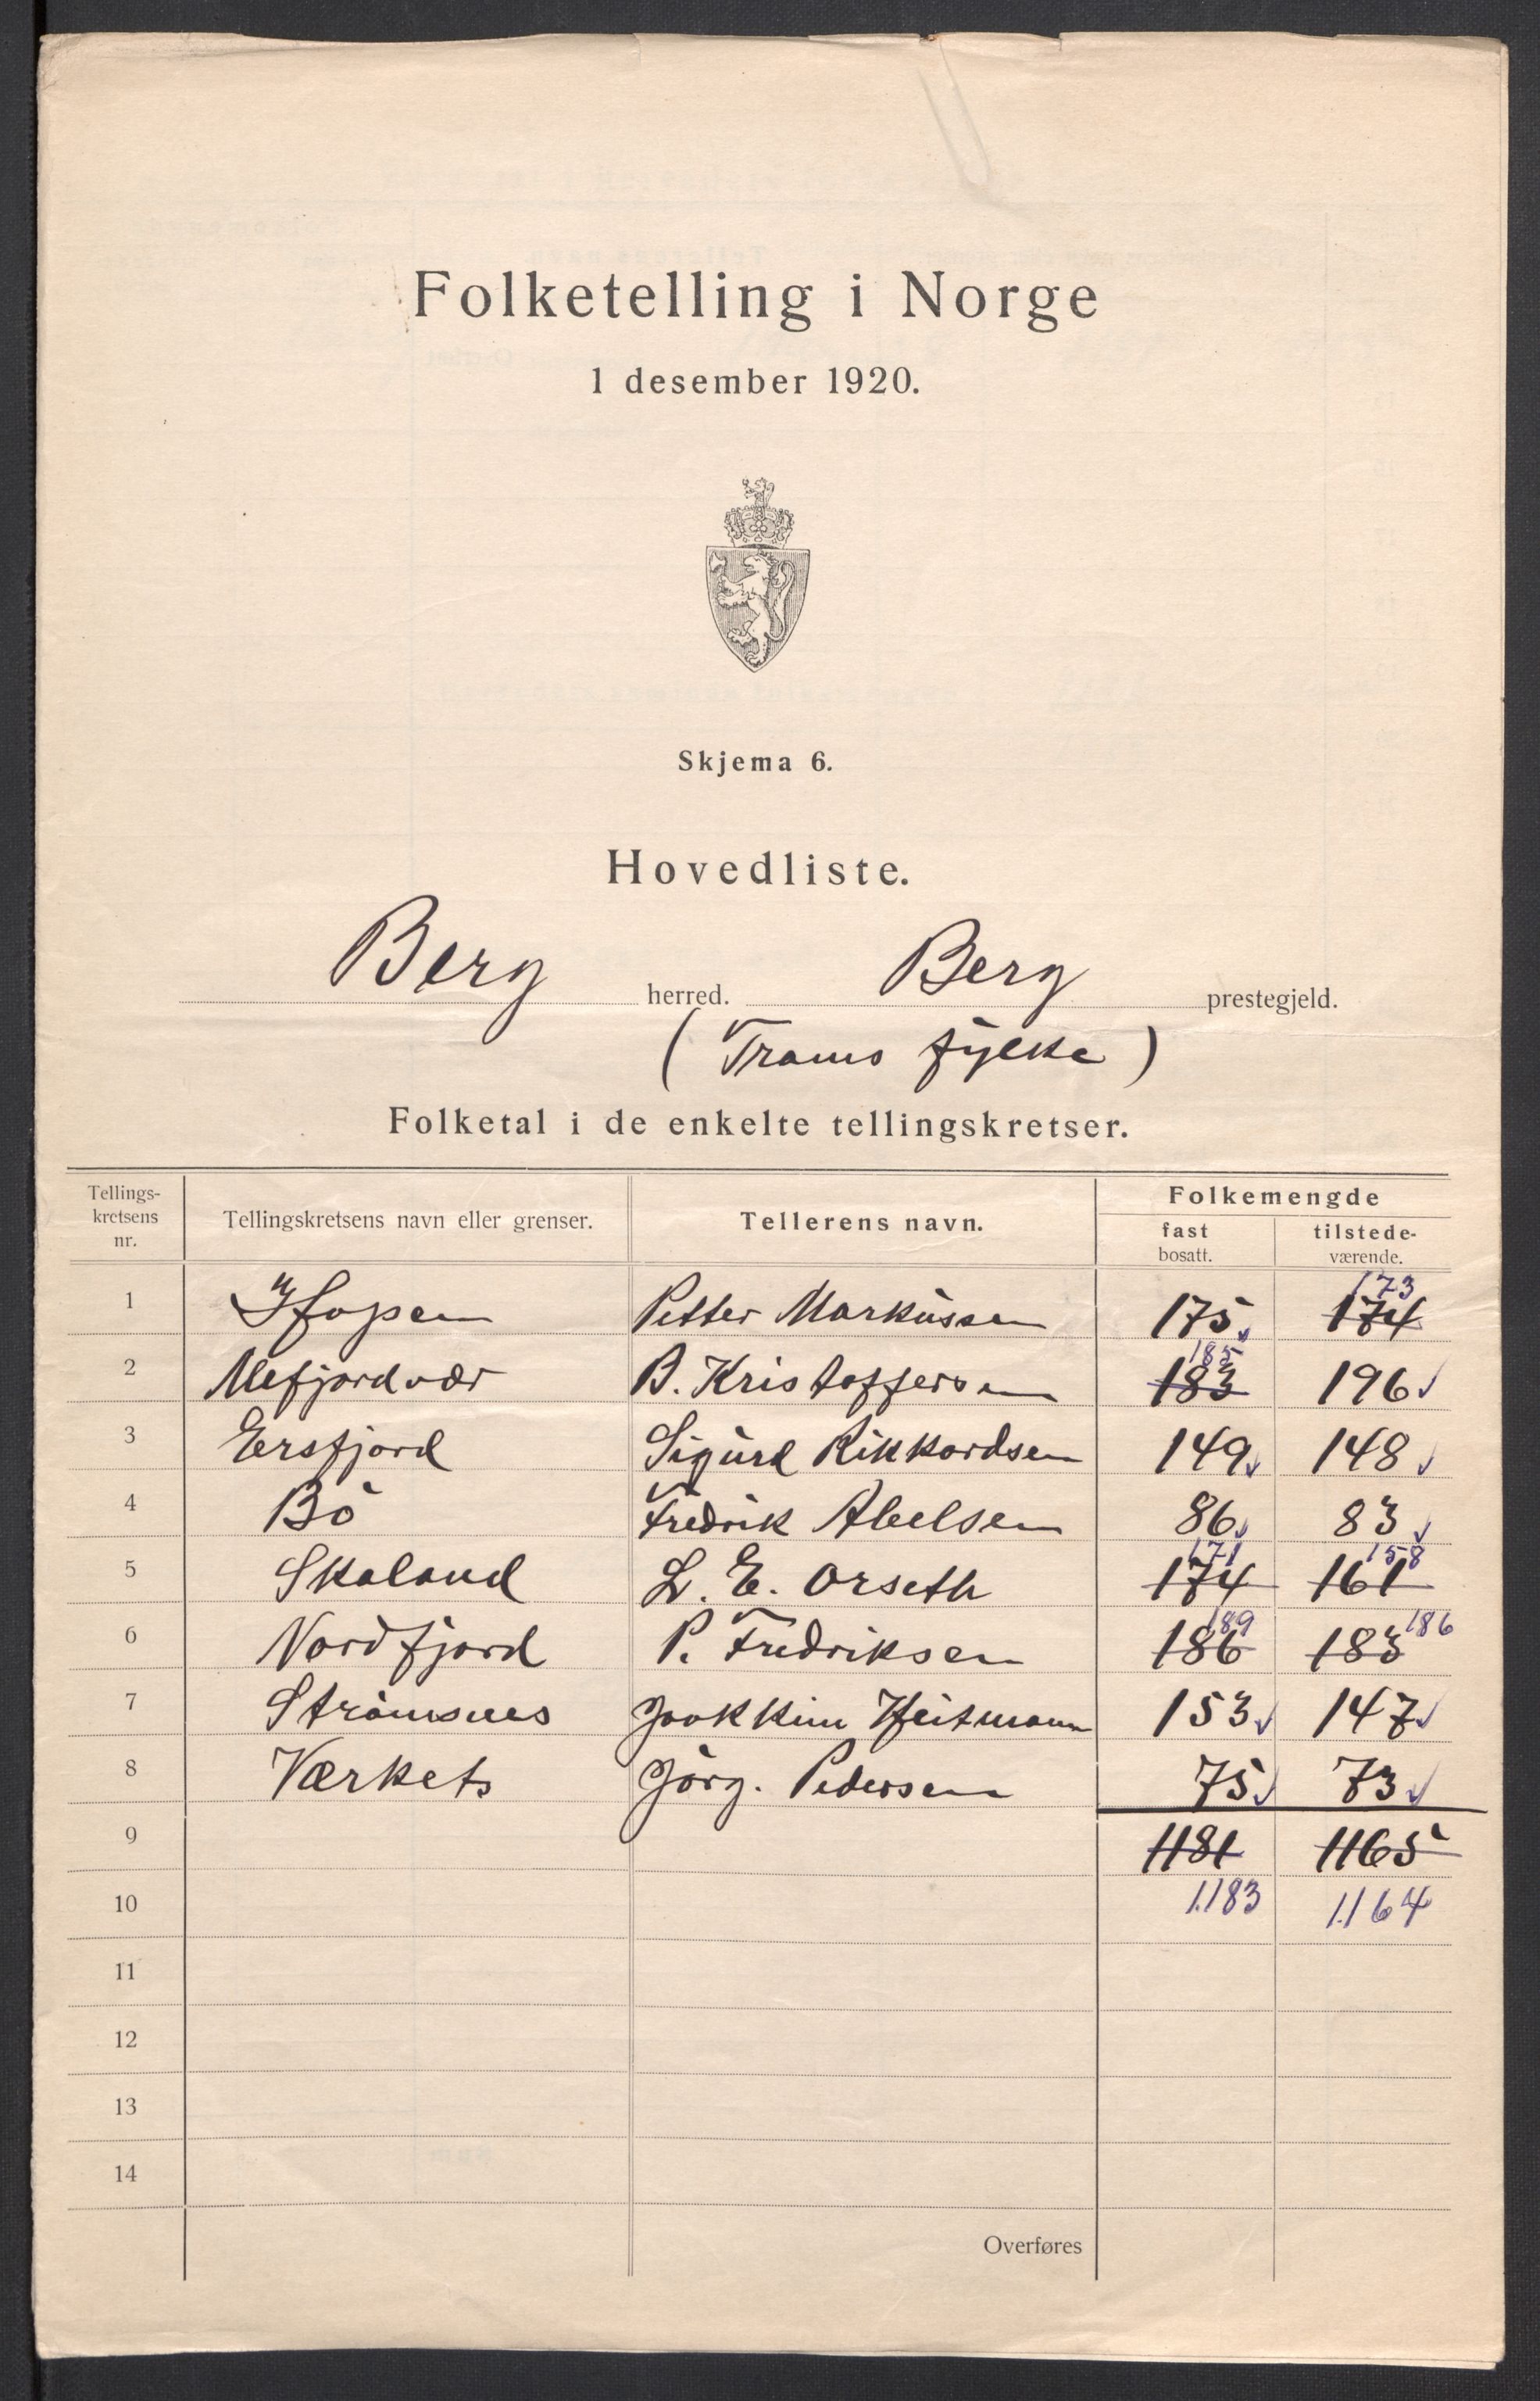 Folketelling i Norge
1 desember 1920.
Skjema 6.
Hovedliste.
Berg herred. Berg prestegjeld.
(Troms fylke)
Folketal i de enkelte tellingskretser.
Tellings-kretsens nr. Tellingskretsens navn eller grenser. Tellerens navn. Folkemengde
fast bosatt. tilstede-værende.
173
1 Hopen Petter Markussen 175 174
185
2 Mefjordvær B. Kristoffersen 183 196
3 Ersfjord Sigurd Rikkardsen 149 148
4 Bö Fredrik Abelsen 86 83
171 158
5 Skaland L. E. Orseth 174 161
189 186
6 Nordfjord P. Fredriksen 186 183
7 Strömsnes Joakkim Heitmann 153 147
8 Værkets Jörg. Pedersen 75 73
9 1181 1165
10 1.183 1.164
11
12
13
14
Overføres